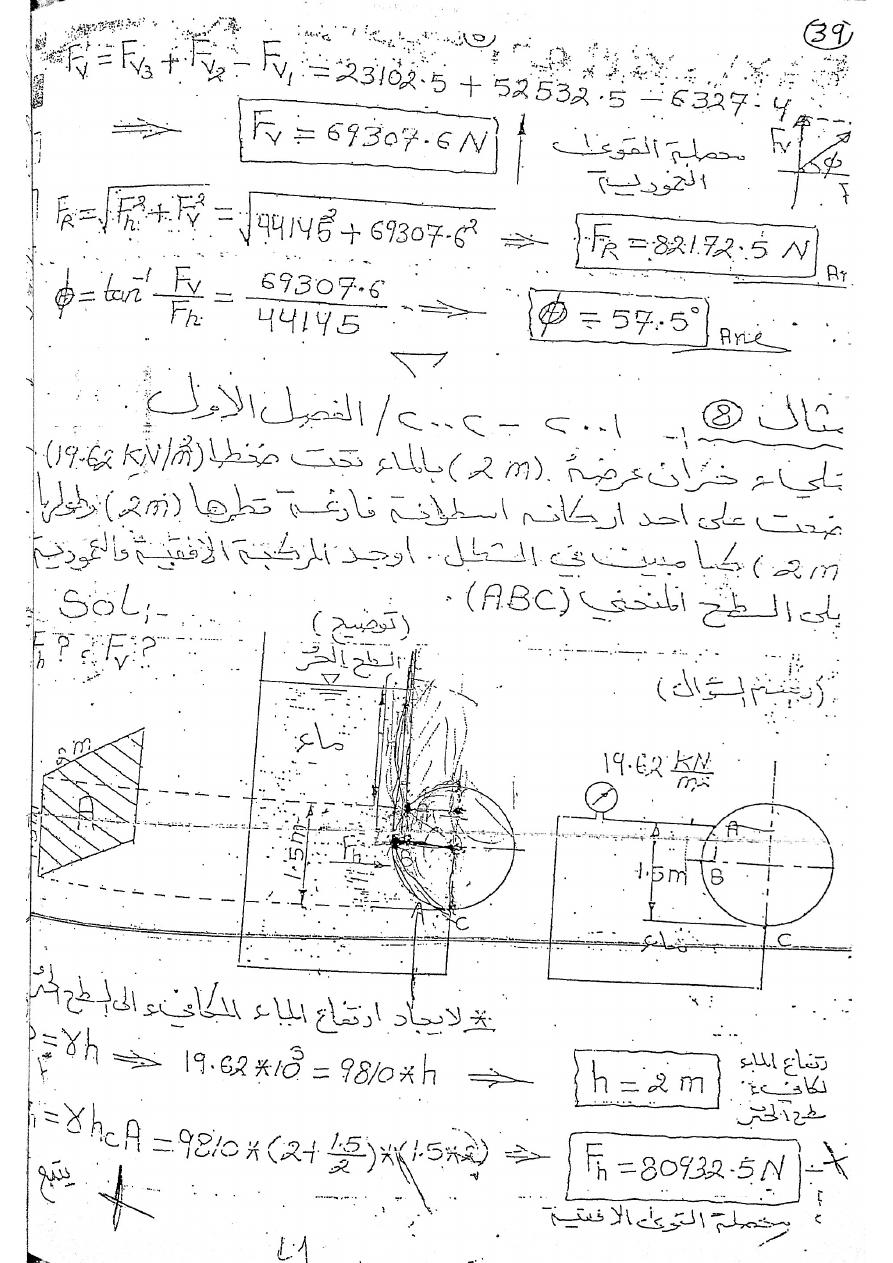 39
Fv = Fv3 + Fv2 - Fv1 = 23102.5 + 52532.5 - 6327.4
⇒ Fv = 69307.6 N ↑ محصلة القوى
العمودية
Fv
φ
FR = √(Fh² + Fv²) = √(44145² + 69307.6²) ⇒ FR = 82172.5 N
φ = tan⁻¹ Fv/Fh = 69307.6/44145 ⇒ φ = 57.5° Ans
مثال 8 :- ٢٠٠١ - ٢٠٠٢ / الفصل الاول
خزان عرضه (2 m) بالماء تحت ضغط (19.62 KN/m²)
ضعت على احد اركانه اسطوانة فارغة قطرها (2m) وطولها
2m) كما مبين في الشكل. اوجد المركبة الافقية والعمودية
على السطح المنحني (ABC).
SOL:-
Fh ? , Fv ?
(توضيح)
السطح الحر
(رسم السؤال)
ماء
2m
19.62 KN/m²
A
1.5m
Fh
B
1.5m
C
A
C
ماء
* لايجاد ارتفاع الماء المكافيء الى السطح الحر
= γh ⇒ 19.62*10³ = 9810*h ⇒ h = 2 m
ارتفاع الماء
لمكافيء
سطح الحر
= γhcA = 9810*(2 + 1.5/2)*(1.5*2) ⇒ Fh = 80932.5 N
محصلة القوى الافقية
يتبع